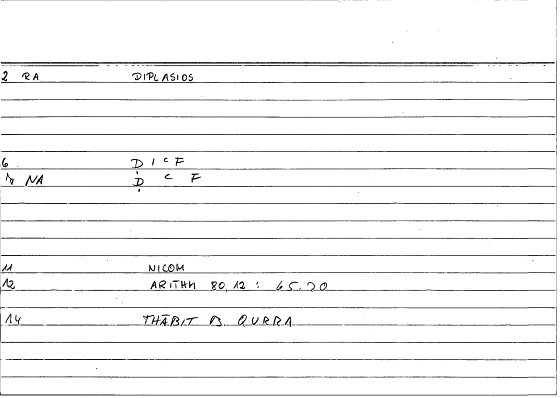 2 RA DIPLASIOS
6 D I C F
NA D C F
11 NICOM
12 ARITHM 80,12 : 65.20
14 THĀBIT B. QURRA